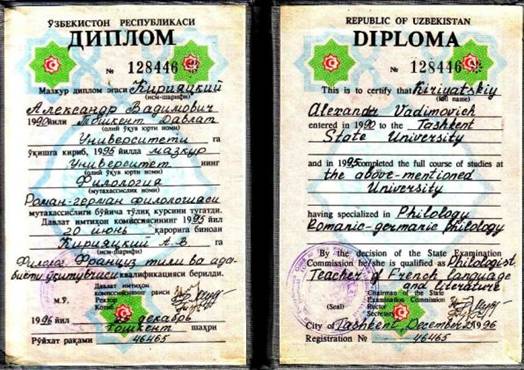 ЎЗБЕКИСТОН РЕСПУБЛИКАСИ
ДИПЛОМ
№ 128446
Мазкур диплом эгаси Кирияцкий
(исм-шарифи)
Александр Вадимович
1990 йили Тошкент Давлат
(олий ўқув юрти номи)
Университети га
ўқишга кириб, 1995 йилда мазкур
Университет нинг
(олий ўқув юрти номи)
Филология
(мутахассислик номи)
Роман-герман филологияси
мутахассислиги бўйича тўлиқ курсини тугатди.
Давлат имтиҳон комиссиясининг 1995 йил
20 июнь қарорига биноан
Кирияцкий А.В га
Филолог Француз тили ва ада-
биёти ўқитувчиси квалификацияси берилди.
Давлат имтиҳон
комиссиясининг раиси
М.Ў. Ректор
1996 йил декабрь
Тошкент шаҳри
Рўйхат рақами 46465
REPUBLIC OF UZBEKISTAN
DIPLOMA
№ 128446
This is to certify that Kiriyatskiy
(full name)
Alexander Vadimovich
entered in 1990 to the Tashkent
State University
and in 1995 completed the full course of studies at
the above-mentioned
University
having specialized in Philology
Romanic-germanic philology
By the decision of the State Examination
Commission he/she is qualified as Philologist,
Teacher of French Language
and literature
Chairman of the State
Examination Commission
(Seal) Rector
Secretary
City of Tashkent, December 1996
Registration № 46465